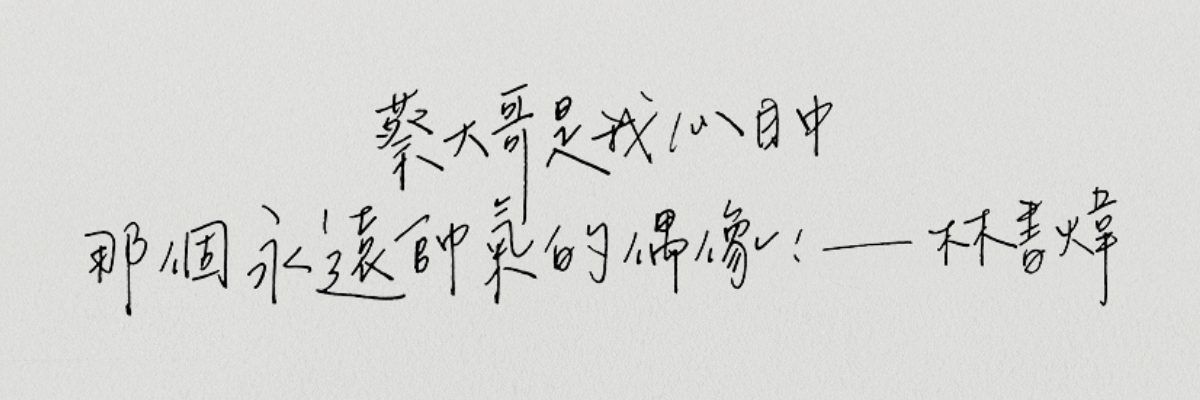 蔡大哥是我心目中
那個永遠帥氣的偶像!——林書煒